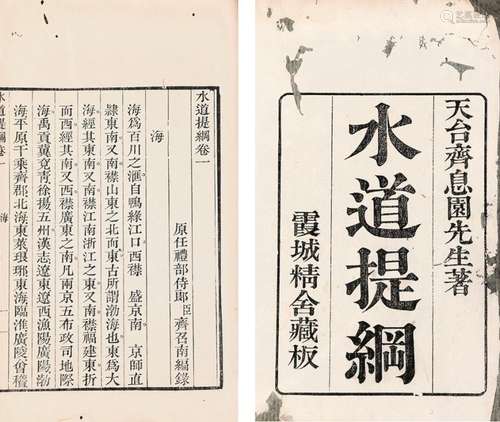 天台齊息園先生著
水道提綱
霞城精舍藏板
水道提綱卷一
原任禮部侍郎臣齊召南編錄
海
海爲百川之滙自鴨綠江口西襟 盛京南 京師直
隸東南又南襟山東之北而東古所謂渤海也東爲大
海經其東南又南襟江南浙江之東又南襟福建東折
而西經其南又西襟廣東之南凡兩京五布政司地際
海禹貢冀兗靑徐揚五州漢志遼東遼西漁陽廣陽渤
海平原千乘齊郡北海東萊琅琊東海臨淮廣陵會稽
水道提綱卷一 海